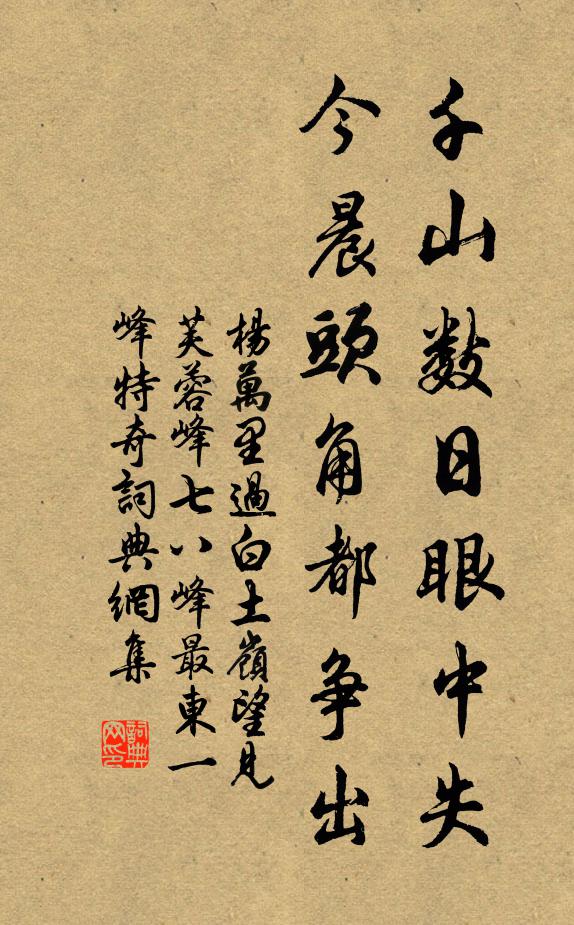 千山數日眼中失
今晨頭角都争出
楊萬里過白土嶺望見
芙蓉峰七八峰最東一
峰特奇詞典網集
詞典
网印